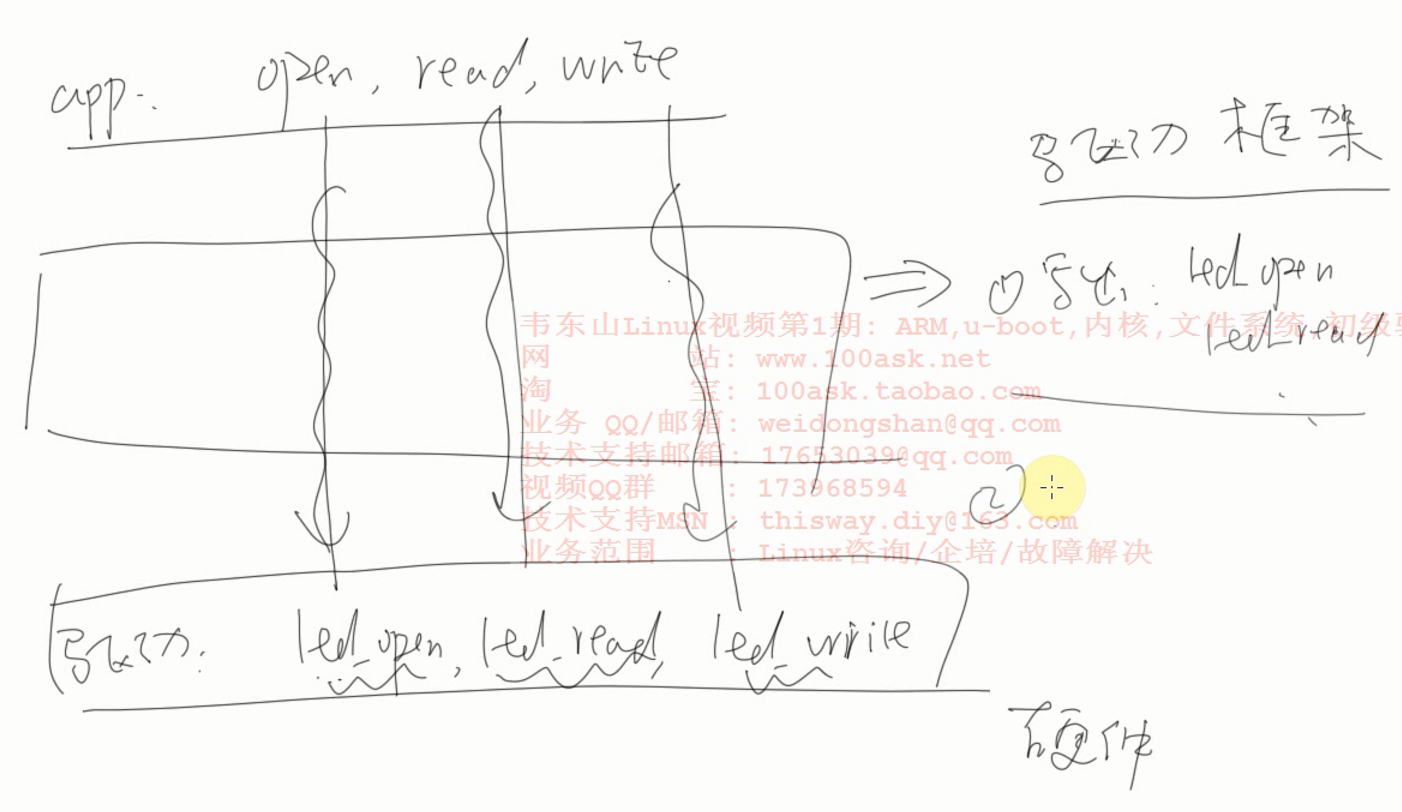 app: open, read, write
驱动框架
① 写出: led_open
led_read
韦东山Linux视频第1期: ARM,u-boot,内核,文件系统,初级驱
网 站: www.100ask.net
淘 宝: 100ask.taobao.com
业务 QQ/邮箱: weidongshan@qq.com
技术支持邮箱: 17653039@qq.com
视频QQ群 : 173968594
②
技术支持MSN : thisway.diy@163.com
业务范围 : Linux咨询/企培/故障解决
驱动: led_open, led_read, led_write
硬件